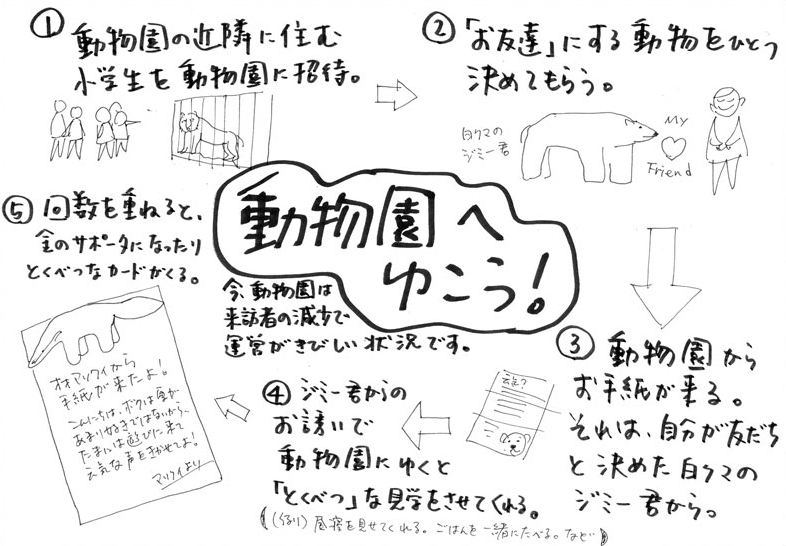 動物園へ
ゆこう!
今、動物園は
来訪者の減少で
運営がきびしい状況です。
① 動物園の近隣に住む
小学生を動物園に招待。
② 「お友達」にする動物をひとつ
決めてもらう。
白クマの
ジミー君
My
Friend
③ 動物園から
お手紙が来る。
それは、自分が友だち
と決めた白クマの
ジミー君から。
④ ジミー君からの
お誘いで
動物園にゆくと
「とくべつ」な見学をさせてくれる。
昼寝を見せてくれる。ごはんを一緒にたべる。など
⑤ 回数を重ねると、
金のサポータになったり
とくべつなカードがくる。
アリクイから
手紙が来たよ!
こんにちは、ボクは
あまり好きではないから、
たまには遊びに来て
元気な声をきかせてよ!
アリクイより